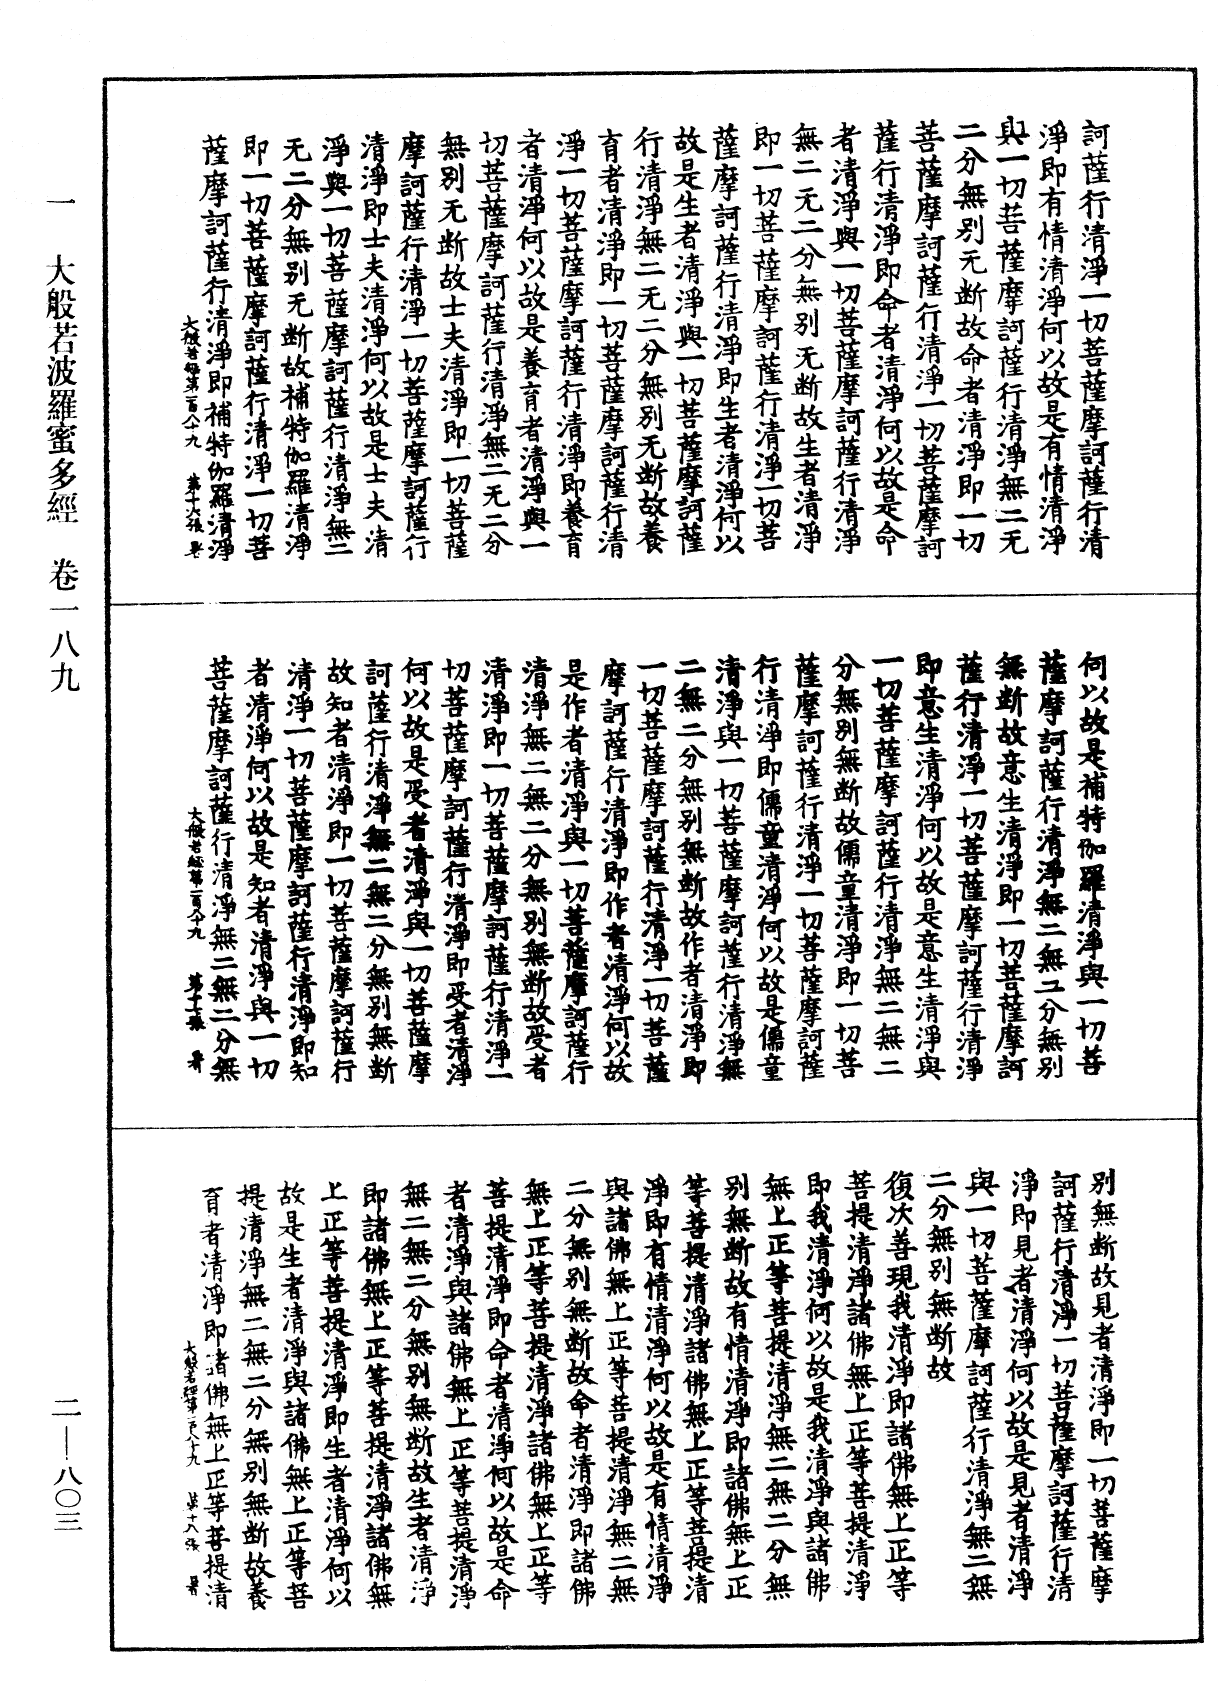 訶薩行清淨一切菩薩摩訶薩行清
淨即有情清淨何以故是有情清淨
與一切菩薩摩訶薩行清淨無二无
二分無别无断故命者清淨即一切
菩薩摩訶薩行清淨一切菩薩摩訶
薩行清淨即命者清淨何以故是命
者清淨與一切菩薩摩訶薩行清淨
無二无二分無别无断故生者清淨
即一切菩薩摩訶薩行清淨一切菩
薩摩訶薩行清淨即生者清淨何以
故是生者清淨與一切菩薩摩訶薩
行清淨無二无二分無别无断故養
育者清淨即一切菩薩摩訶薩行清
淨一切菩薩摩訶薩行清淨即養育
者清淨何以故是養育者清淨與一
切菩薩摩訶薩行清淨無二无二分
無别无断故士夫清淨即一切菩薩
摩訶薩行清淨一切菩薩摩訶薩行
清淨即士夫清淨何以故是士夫清
淨與一切菩薩摩訶薩行清淨無二
无二分無别无断故補特伽羅清淨
即一切菩薩摩訶薩行清淨一切菩
薩摩訶薩行清淨即補特伽羅清淨
大般若經第一百八十九 第十六張 暑
何以故是補特伽羅清淨與一切菩
薩摩訶薩行清淨無二無二分無别
無断故意生清淨即一切菩薩摩訶
薩行清淨一切菩薩摩訶薩行清淨
即意生清淨何以故是意生清淨與
一切菩薩摩訶薩行清淨無二無二
分無别無断故儒童清淨即一切菩
薩摩訶薩行清淨一切菩薩摩訶薩
行清淨即儒童清淨何以故是儒童
清淨與一切菩薩摩訶薩行清淨無
二無二分無别無断故作者清淨即
一切菩薩摩訶薩行清淨一切菩薩
摩訶薩行清淨即作者清淨何以故
是作者清淨與一切菩薩摩訶薩行
清淨無二無二分無别無断故受者
清淨即一切菩薩摩訶薩行清淨一
切菩薩摩訶薩行清淨即受者清淨
何以故是受者清淨與一切菩薩摩
訶薩行清淨無二無二分無别無断
故知者清淨即一切菩薩摩訶薩行
清淨一切菩薩摩訶薩行清淨即知
者清淨何以故是知者清淨與一切
菩薩摩訶薩行清淨無二無二分無
大般若經第一百八十九 第十七張 暑
别無断故見者清淨即一切菩薩摩
訶薩行清淨一切菩薩摩訶薩行清
淨即見者清淨何以故是見者清淨
與一切菩薩摩訶薩行清淨無二無
二分無别無断故
復次善現我清淨即諸佛無上正等
菩提清淨諸佛無上正等菩提清淨
即我清淨何以故是我清淨與諸佛
無上正等菩提清淨無二無二分無
别無断故有情清淨即諸佛無上正
等菩提清淨諸佛無上正等菩提清
淨即有情清淨何以故是有情清淨
與諸佛無上正等菩提清淨無二無
二分無别無断故命者清淨即諸佛
無上正等菩提清淨諸佛無上正等
菩提清淨即命者清淨何以故是命
者清淨與諸佛無上正等菩提清淨
無二無二分無别無断故生者清淨
即諸佛無上正等菩提清淨諸佛無
上正等菩提清淨即生者清淨何以
故是生者清淨與諸佛無上正等菩
提清淨無二無二分無别無断故養
育者清淨即諸佛無上正等菩提清
大般若經第一百八十九 第十八張 暑
一 大般若波羅蜜多經 卷一八九
二—八〇三